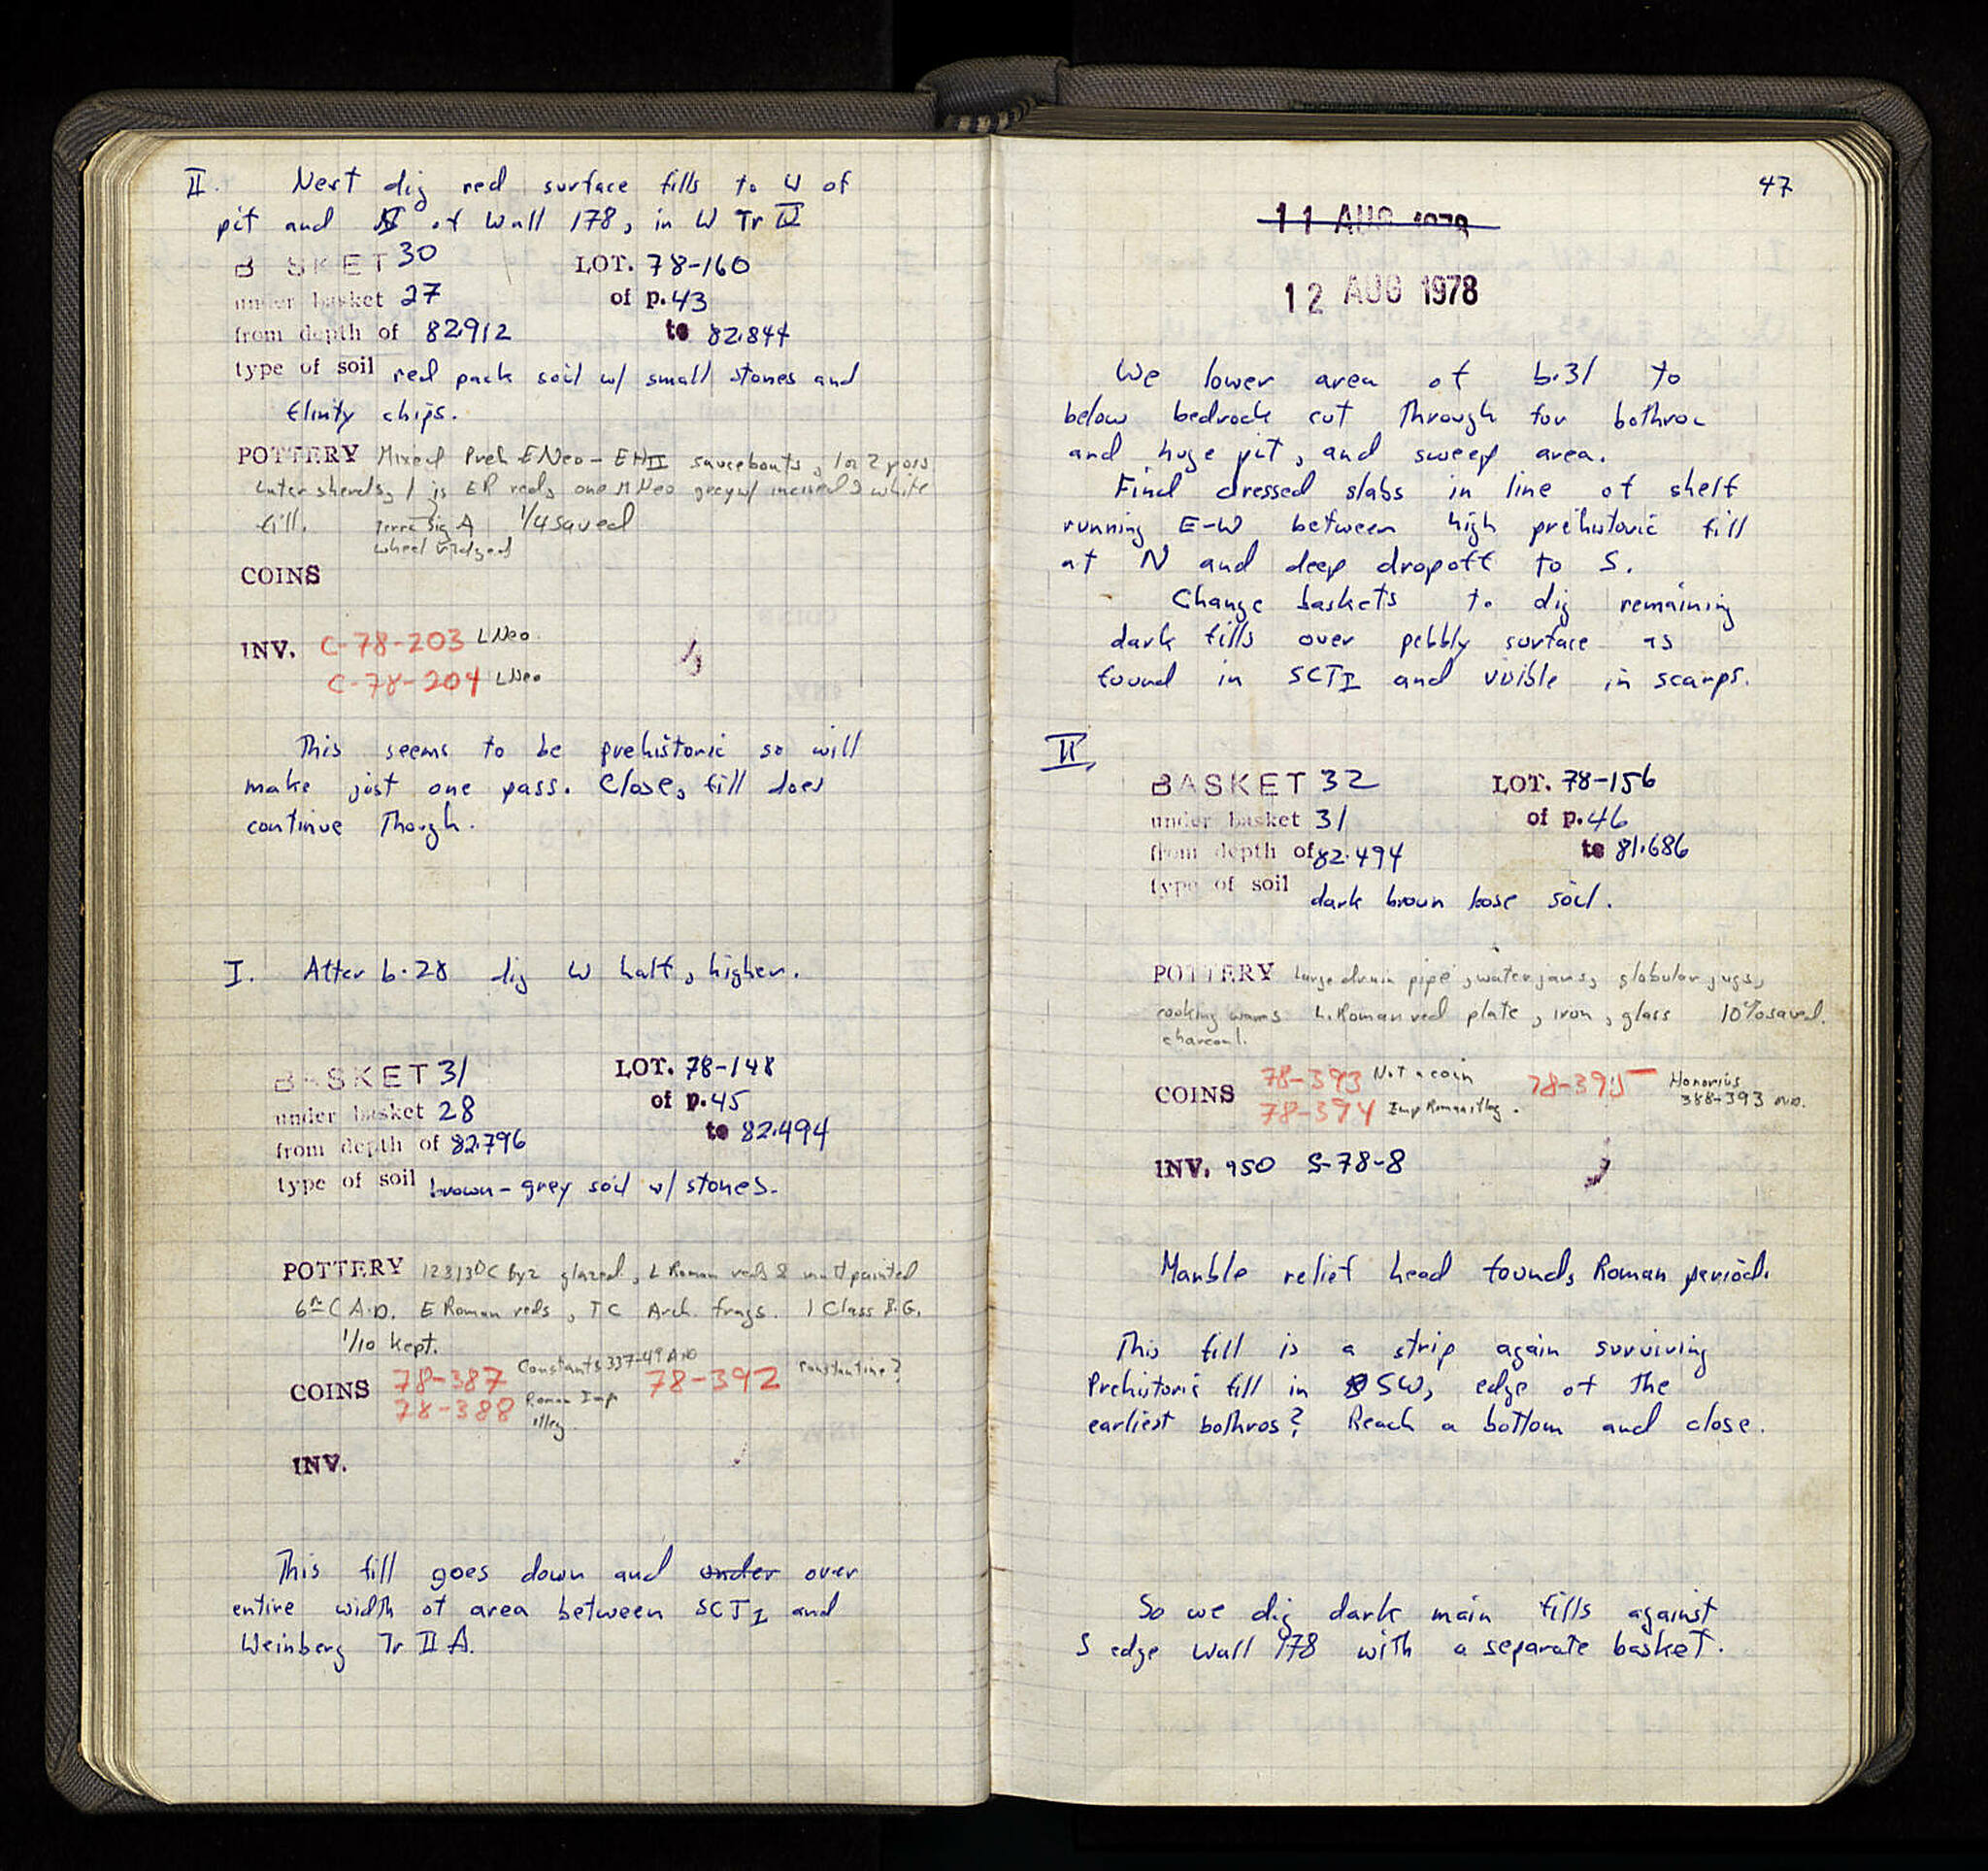 II. Next dig red surface fills to W of
pit and N of Wall 178, in W Tr II
B SKET 30 LOT. 78-160
under basket 27 of p. 43
from depth of 82.912 to 82.844
type of soil red pack soil w/ small stones and
flinty chips.
POTTERY Mixed Preh ENeo - EHII sauceboats, 1 or 2 poss
later sherds, 1 is ER red, one MNeo grey w/ incised & white
fill. Terra Sig A 1/4 saved
wheel ridged
COINS
INV. C-78-203 LNeo
C-78-204 LNeo
This seems to be prehistoric so will
make just one pass. Close, fill does
continue though.
I. After b.28 dig W half, higher.
BASKET 31 LOT. 78-148
under basket 28 of p. 45
from depth of 82.796 to 82.494
type of soil brown-grey soil w/ stones.
POTTERY 12&13th C Byz glazed, L Roman reds & matt painted
6th C A.D. E Roman reds, TC Arch. frags. 1 Class B.G.
1/10 kept.
COINS 78-387 Constans 337-49 AD 78-392 Constantine?
78-388 Roman Imp
illeg
INV.
This fill goes down and under over
entire width of area between SCT I and
Weinberg Tr II A.
47
11 AUG 1978
12 AUG 1978
We lower area of b.31 to
below bedrock cut through for bothroi
and huge pit, and sweep area.
Find dressed slabs in line of shelf
running E-W between high prehistoric fill
at N and deep dropoff to S.
Change baskets to dig remaining
dark fills over pebbly surface as
found in SCT I and visible in scarps.
II.
BASKET 32 LOT. 78-156
under basket 31 of p. 46
from depth of 82.494 to 81.686
type of soil dark brown loose soil.
POTTERY Large drain pipe, water jars, globular jugs,
cooking wares L. Roman red plate, iron, glass 10% saved.
charcoal.
COINS 78-393 Not a coin 78-395 Honorius
78-394 Imp Roman illeg. 388-393 A.D.
INV. 950 S-78-8
Marble relief head found, Roman period.
This fill is a strip again surviving
Prehistoric fill in SW, edge of the
earliest bothros? Reach a bottom and close.
So we dig dark main fills against
S edge Wall 178 with a separate basket.